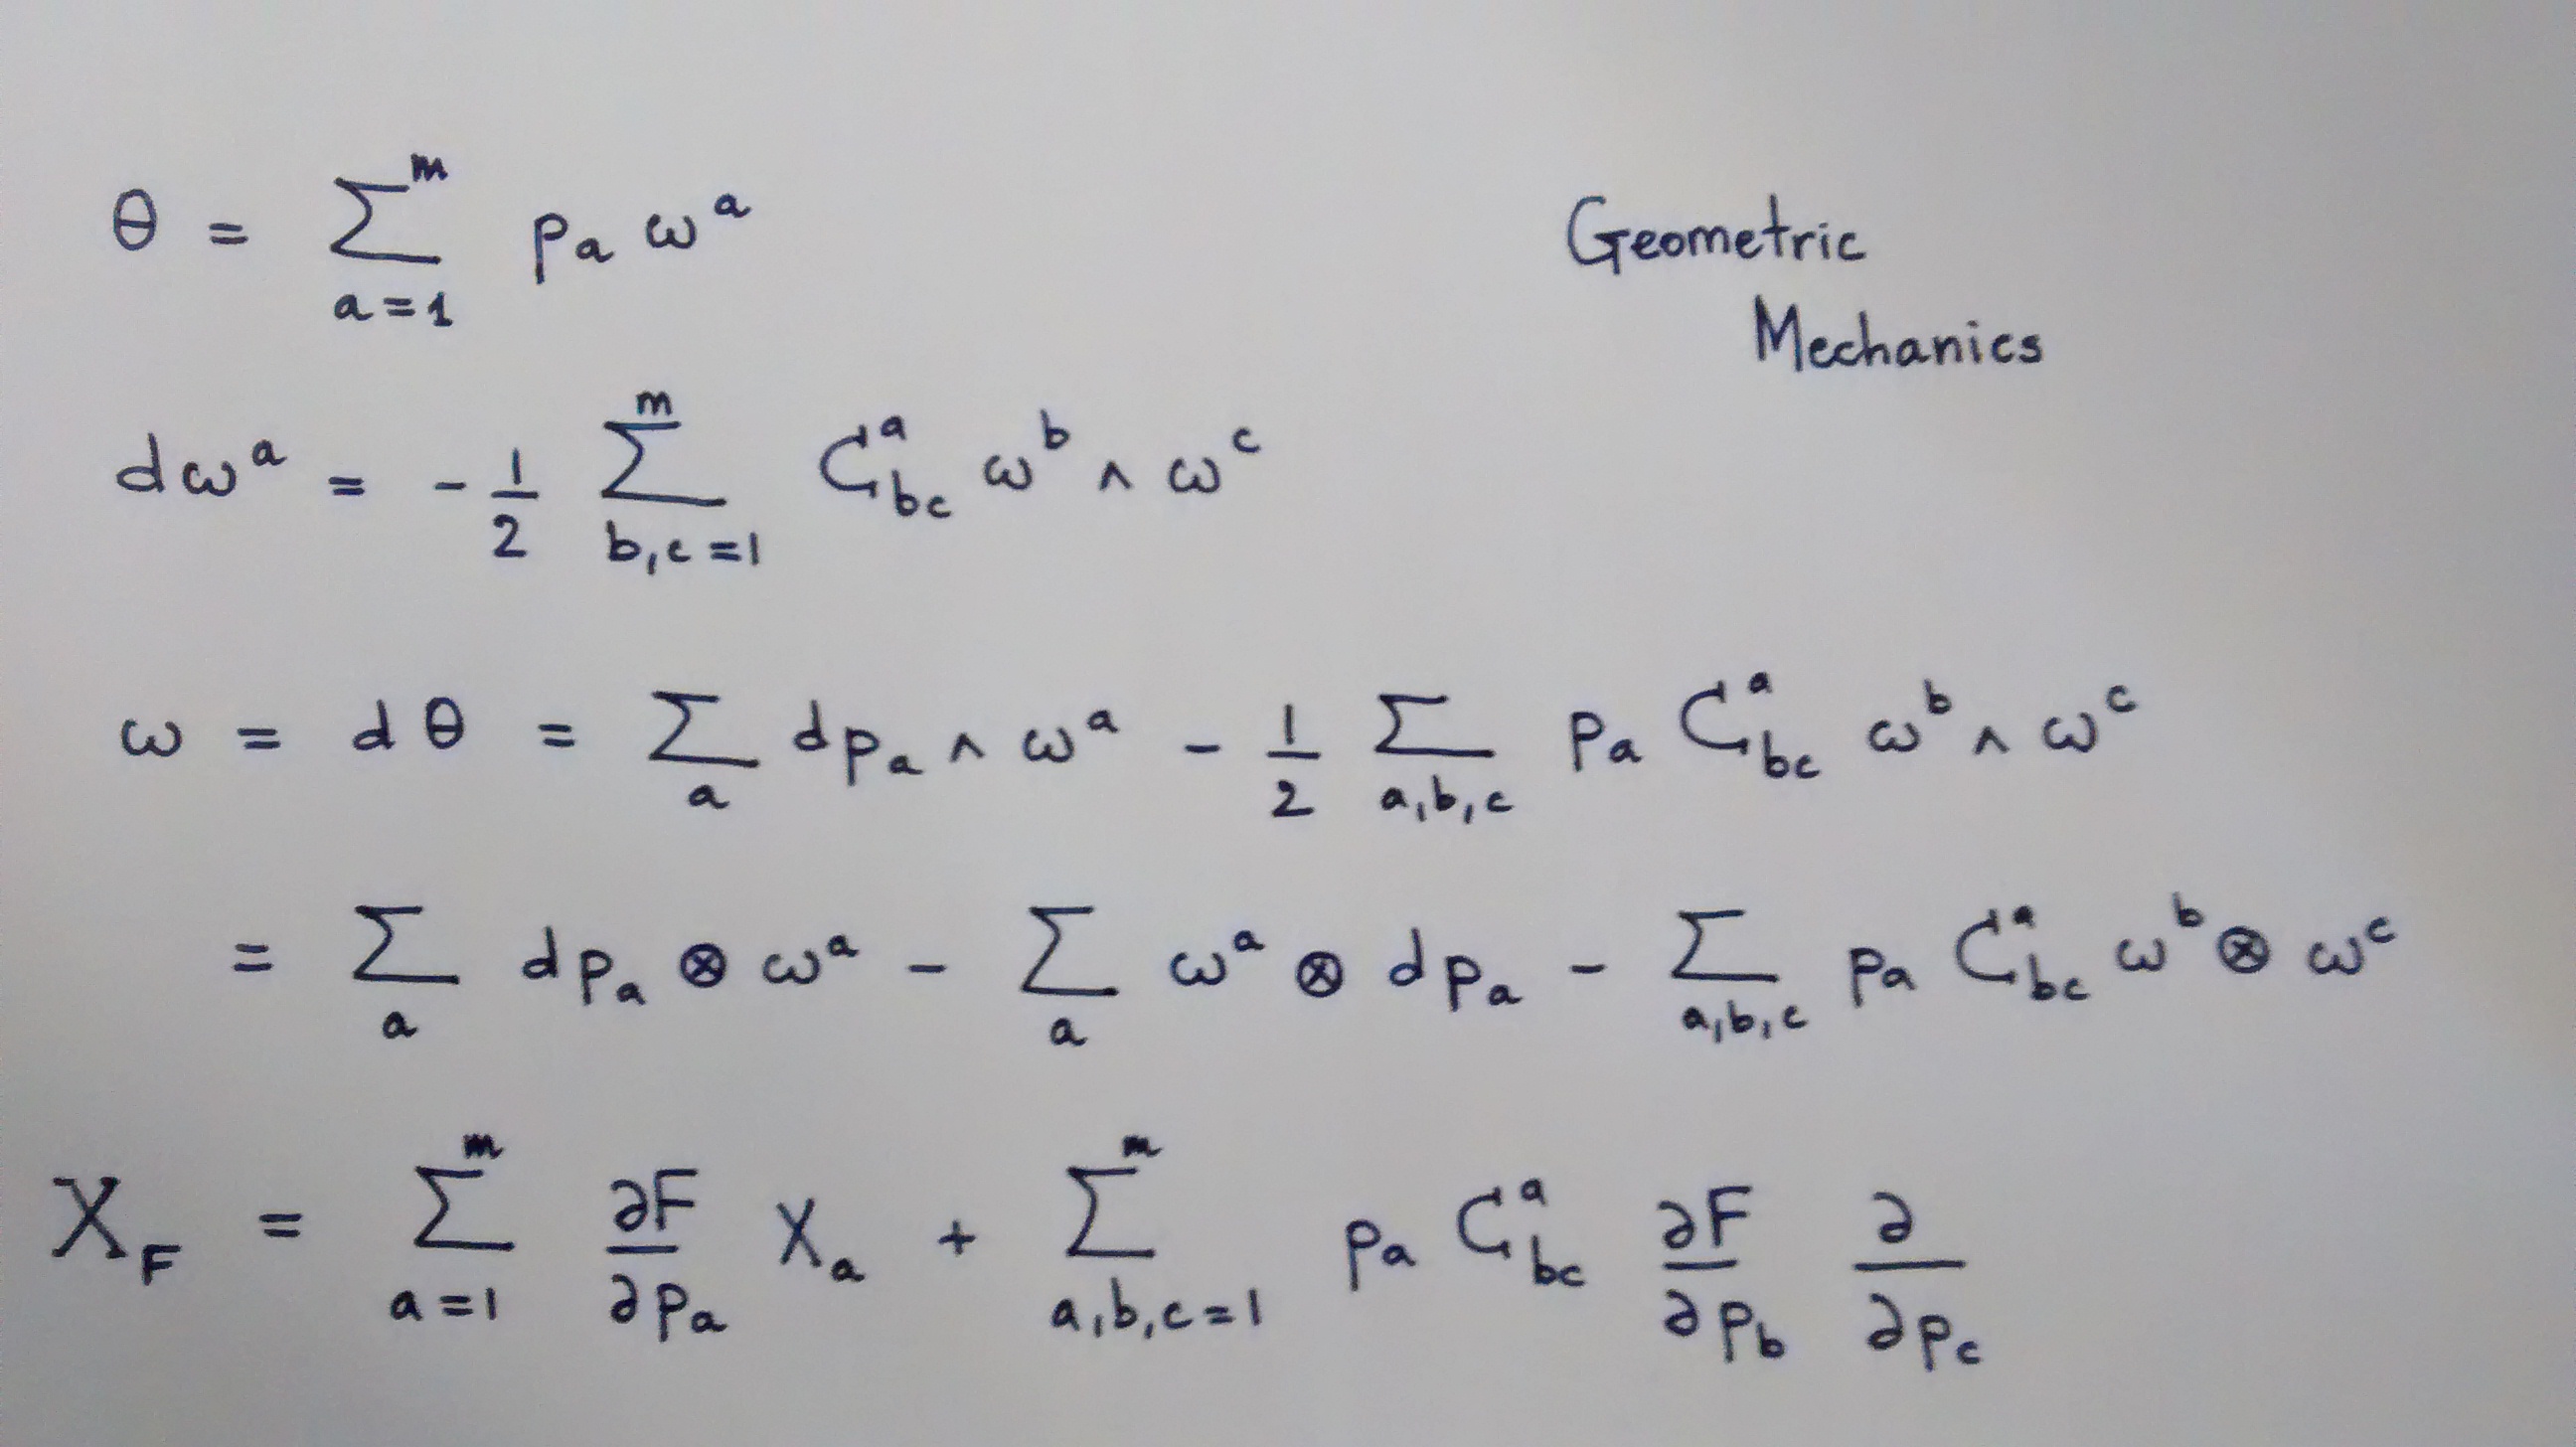 θ = \sum_{a=1}^{m} p_a ω^a
Geometric
Mechanics
dω^a = -\frac{1}{2} \sum_{b,c=1}^{m} C^a_{bc} ω^b ∧ ω^c
ω = dθ = \sum_{a} dp_a ∧ ω^a - \frac{1}{2} \sum_{a,b,c} p_a C^a_{bc} ω^b ∧ ω^c
= \sum_{a} dp_a ⊗ ω^a - \sum_{a} ω^a ⊗ dp_a - \sum_{a,b,c} p_a C^a_{bc} ω^b ⊗ ω^c
X_F = \sum_{a=1}^{m} \frac{∂F}{∂p_a} X_a + \sum_{a,b,c=1}^{m} p_a C^a_{bc} \frac{∂F}{∂p_b} \frac{∂}{∂p_c}